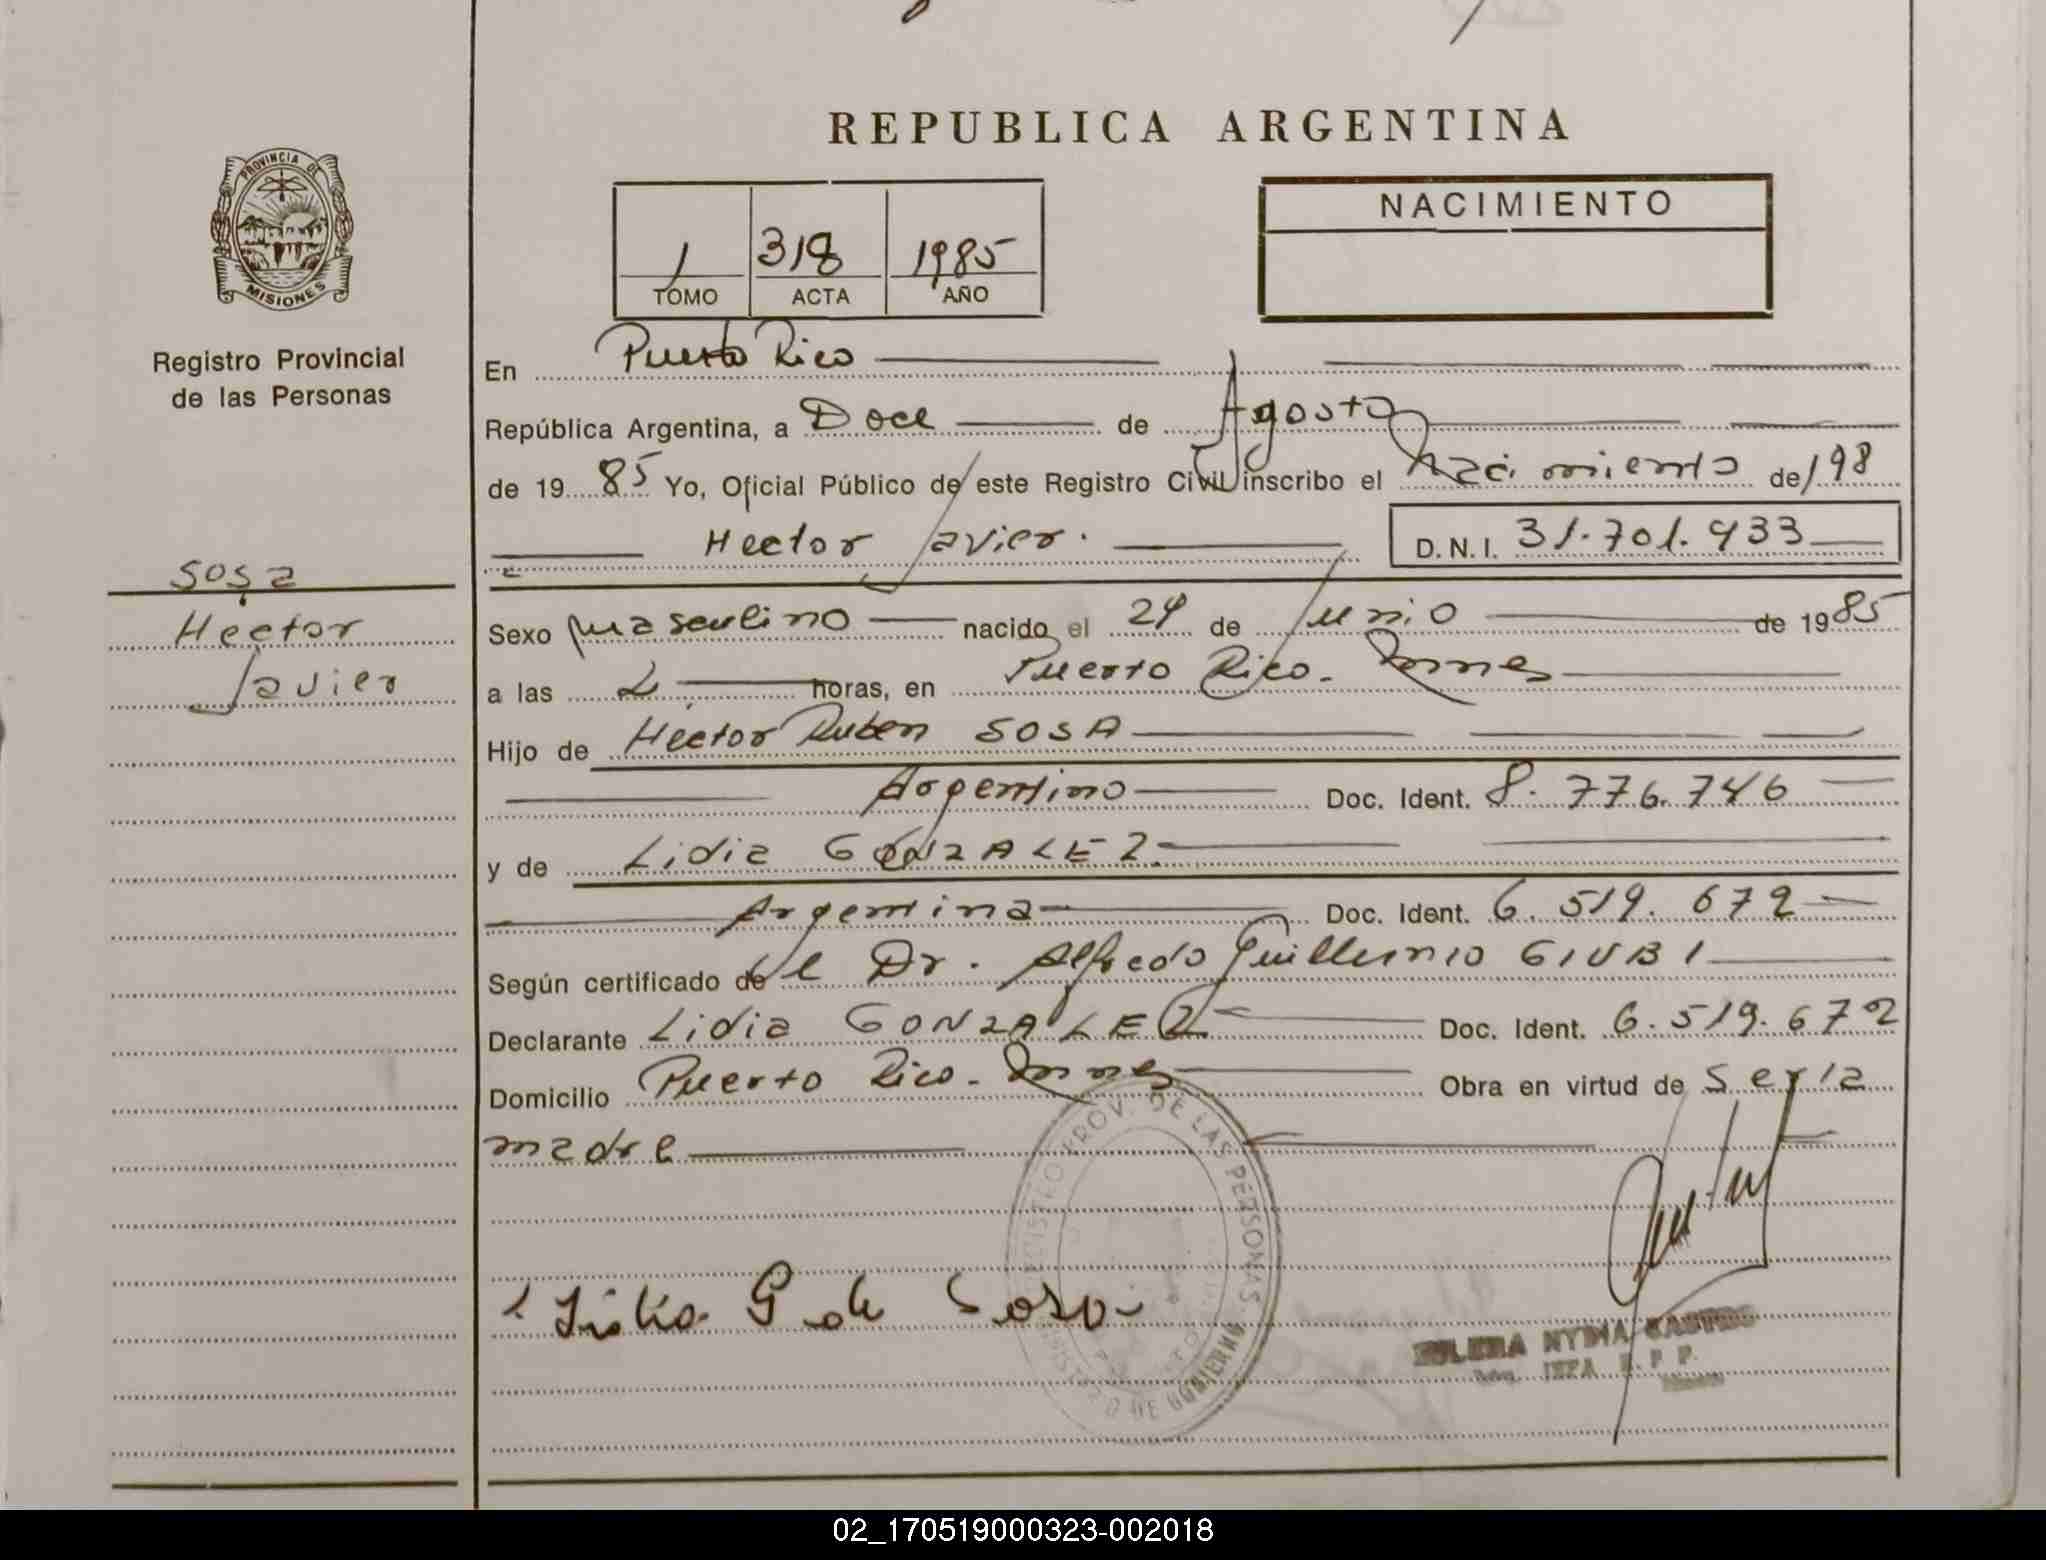 REPUBLICA ARGENTINA
PROVINCIA DE
MISIONES
Registro Provincial
de las Personas
1 318 1985
TOMO ACTA AÑO
NACIMIENTO
En Puerto Rico
República Argentina, a Doce de Agosto
de 1985 Yo, Oficial Público de este Registro Civil inscribo el Nacimiento de 198
Hector Javier. D.N.I. 31.701.933
Sosa
Hector
Javier
Sexo masculino nacido el 24 de Junio de 1985
a las 2 horas, en Puerto Rico. Mnes
Hijo de Héctor Ruben SOSA
Argentino Doc. Ident. 8.776.746
y de Lidia GONZALEZ.
Argentina Doc. Ident. 6.519.672
Según certificado del Dr. Alfredo Guillermo GIUBI
Declarante Lidia GONZALEZ Doc. Ident. 6.519.672
Domicilio Puerto Rico. Mnes Obra en virtud de Ser la
madre
REGISTRO PROV. DE LAS PERSONAS
MINISTERIO DE GOBIERNO
Lidia G de Sosa
NYDIA CASTRO
02_170519000323-002018